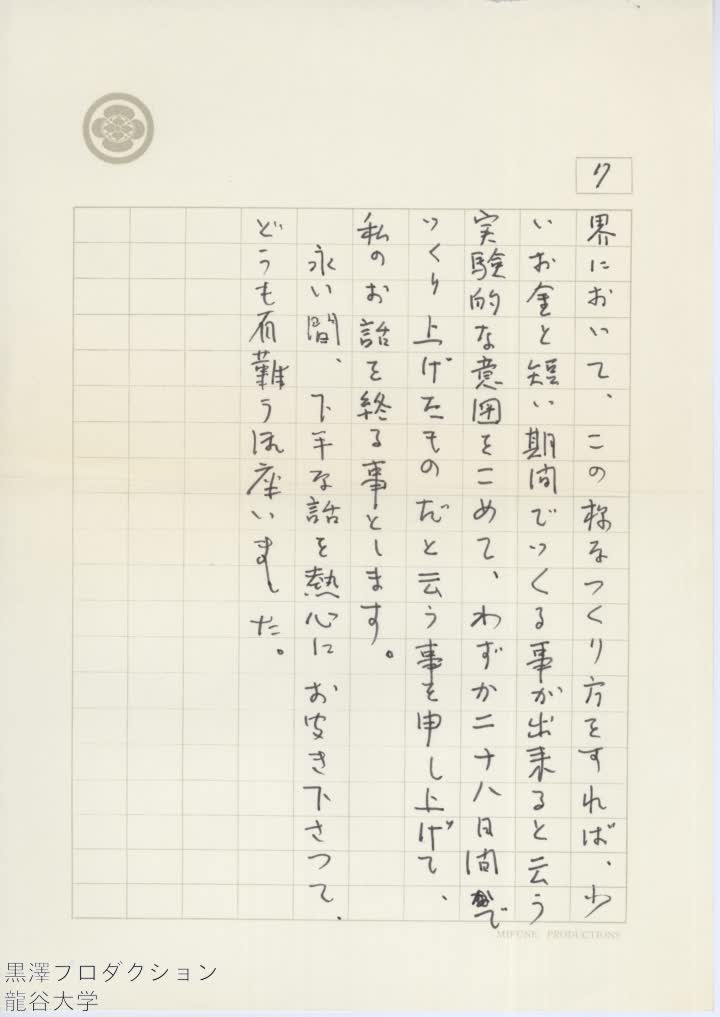 7
界において、この様なつくり方をすれば、少
いお金と短い期間でつくる事が出来ると云う
実験的な意図をこめて、わずか二十八日間で
つくり上げたものだと云う事を申し上げて、
私のお話を終る事とします。
永い間、下手な話を熱心にお聞き下さって、
どうも有難う御座いました。
MIFUNE PRODUCTIONS
黒澤プロダクション
龍谷大学